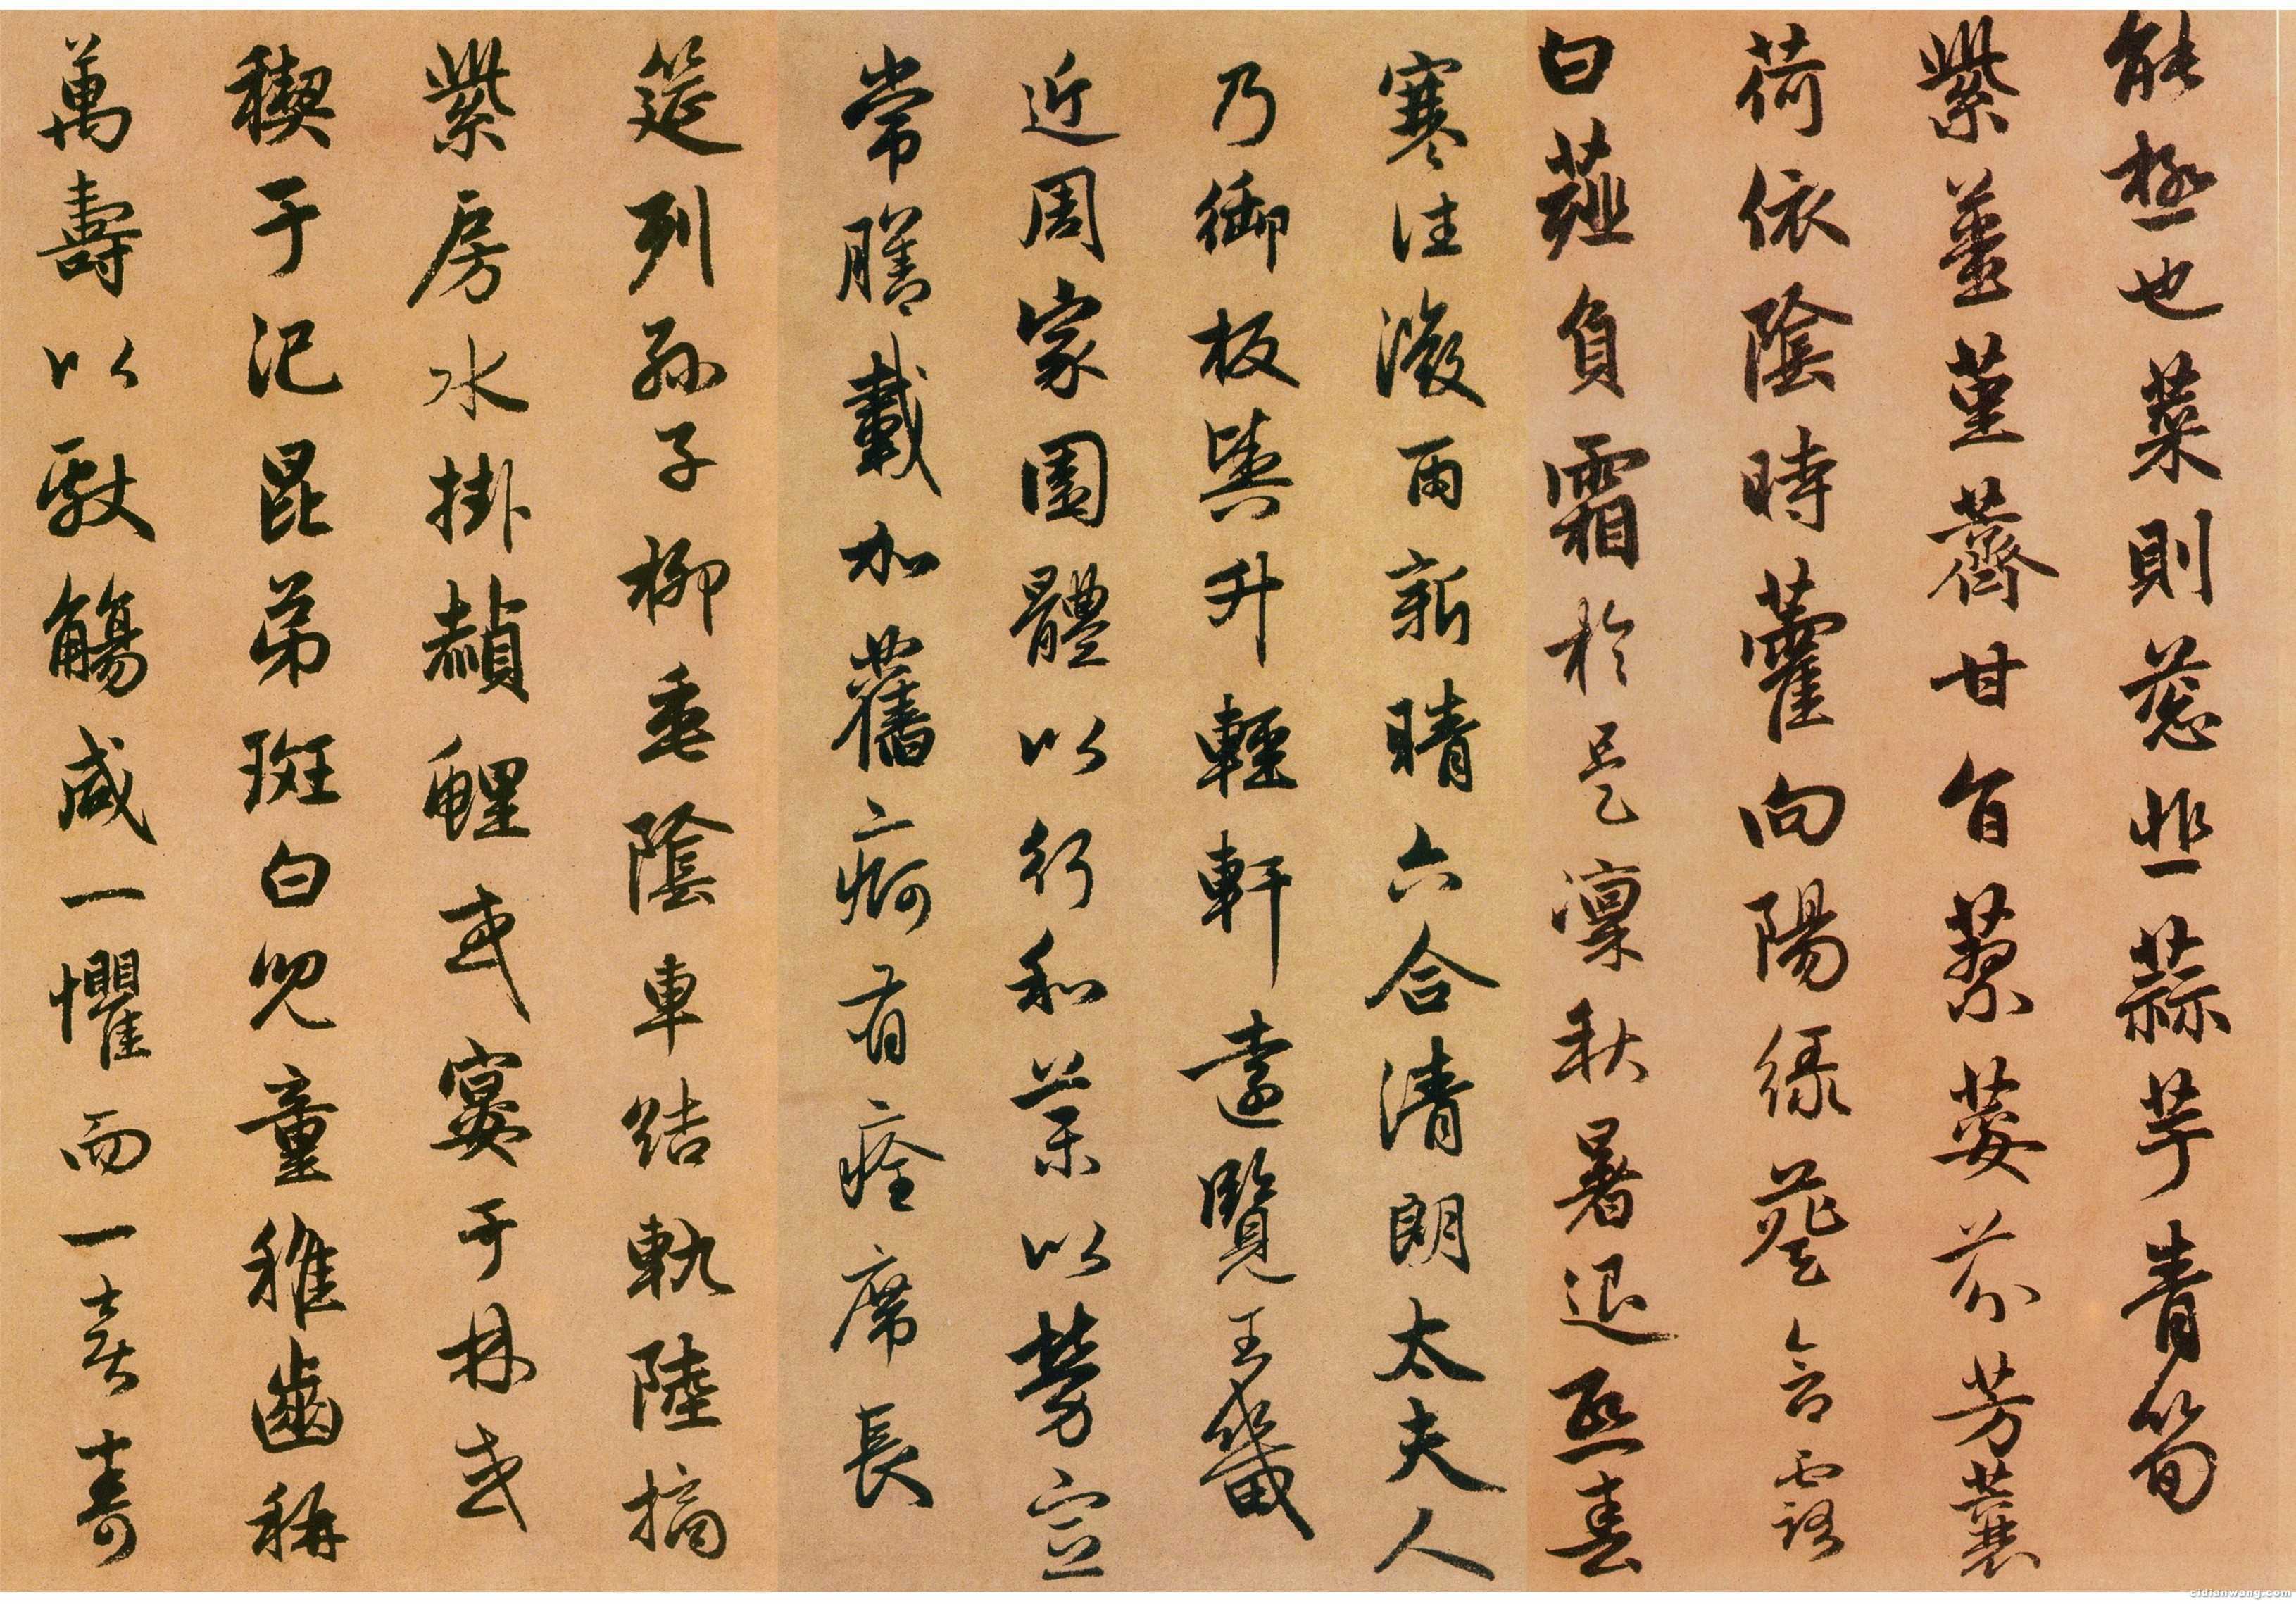 能極也菜則葱韭蒜芋青筍
紫薑堇薺甘旨蓼荽芬芳蘘
荷依陰時藿向陽綠葵含露
白薤負霜於是凜秋暑退熙春
寒往微雨新晴六合清朗太夫人
乃御板輿升輕軒遠覽王畿
近周家園體以行和藥以勞宣
常膳載加舊痾有痊席長
筵列孫子柳垂陰車結軌陸摘
紫房水掛赬鯉或宴于林或
禊于汜昆弟斑白兒童稚齒稱
萬壽以獻觴咸一懼而一喜壽
cidianwang.com